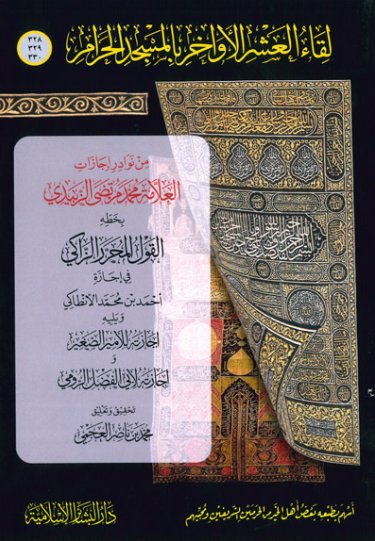 لقاء العشر الأواخر بالمسجد الحرام
٣٢٨
٣٢٩
٣٣٠
من نوادر إجازات
العلامة محمد مرتضى الزبيدي
بخطه
القول المحرر الزاكي
في إجازة
أحمد بن محمد الأنطاكي
ويليه
إجازته للأمير الصغير
و
إجازته لأبي الفضل الرومي
تحقيق وتعليق
محمد بن ناصر العجمي
أسهم بطبعه بعض أهل الخير من الحرمين الشريفين ومحبيهم
دار البشائر الإسلامية